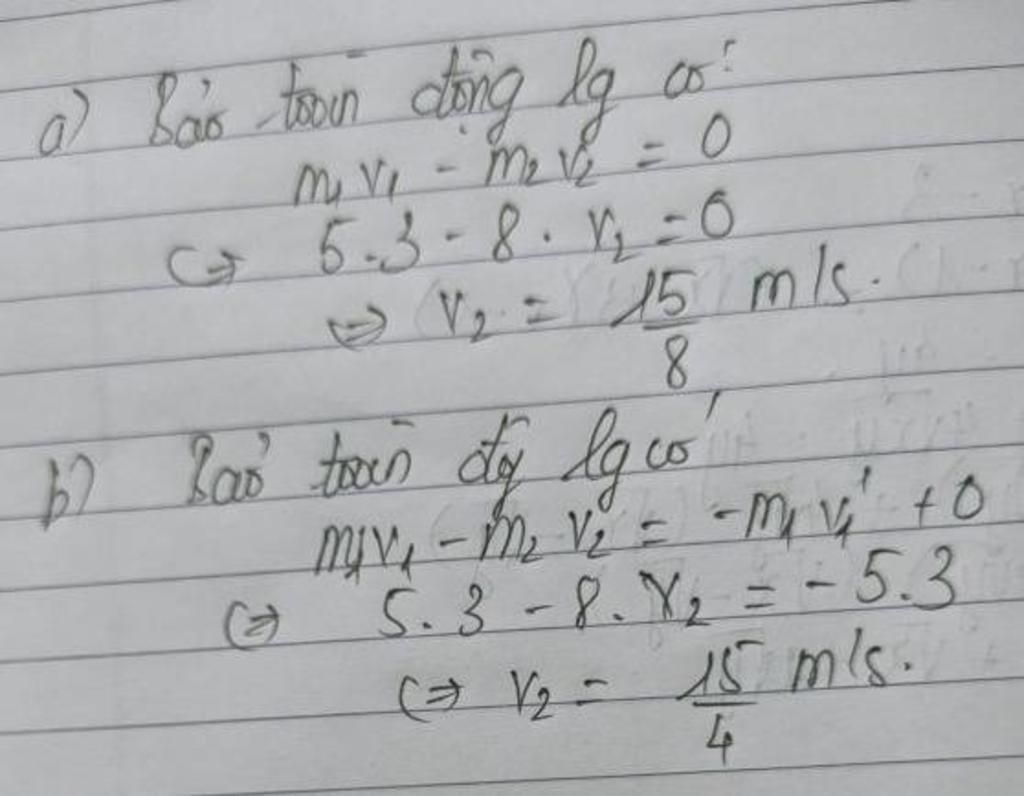 a) Bảo toàn động lg có:
m₁v₁ - m₂v₂ = 0
⇔ 5.3 - 8.v₂ = 0
⇔ v₂ = 15/8 m/s.
b) Bảo toàn đg lg có
m₁v₁ - m₂v₂ = -m₁v₁' + 0
⇔ 5.3 - 8.v₂ = -5.3
⇔ v₂ = 15/4 m/s.